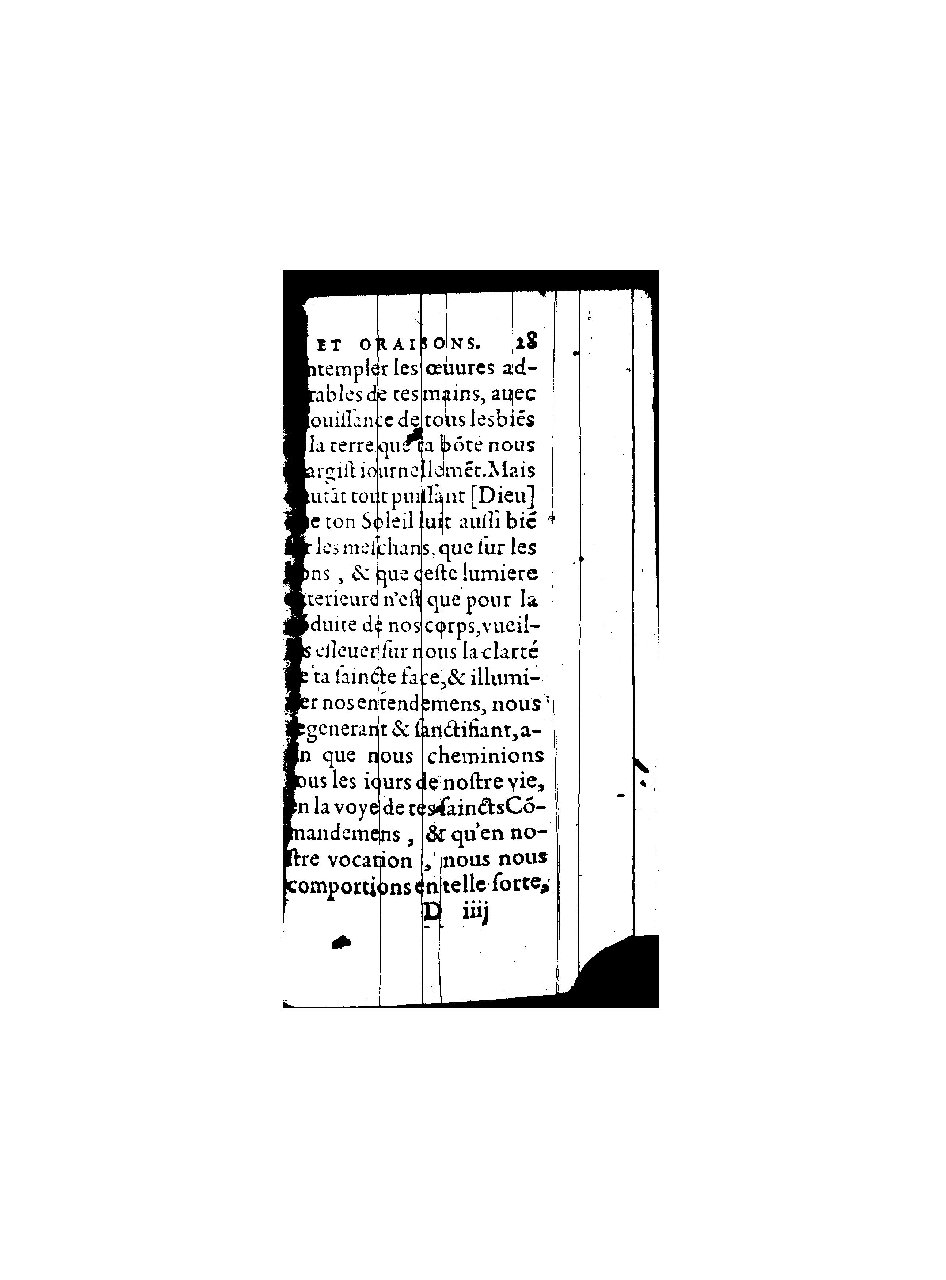 ET ORAISONS. 28
ntempler les œuures ad-
rables de tes mains, auec
iouiſſance de tous les biẽs
la terre que ta bõté nous
argiſt iournellemẽt. Mais
autãt tout puiſſant [Dieu]
e ton Soleil luit auſſi biẽ
r les meſchans, que ſur les
ons, & que ceſte lumiere
terieure n'eſt que pour la
duite de nos corps, vueil-
s eſleuer ſur nous la clarté
e ta ſaincte face, & illumi-
er nos entendemens, nous
egenerant & ſanctifiant, a-
n que nous cheminions
ous les iours de noſtre vie,
en la voye de tes ſaincts Cõ-
mandemens, & qu'en no-
ſtre vocation, nous nous
comportions en telle ſorte,
D iiij